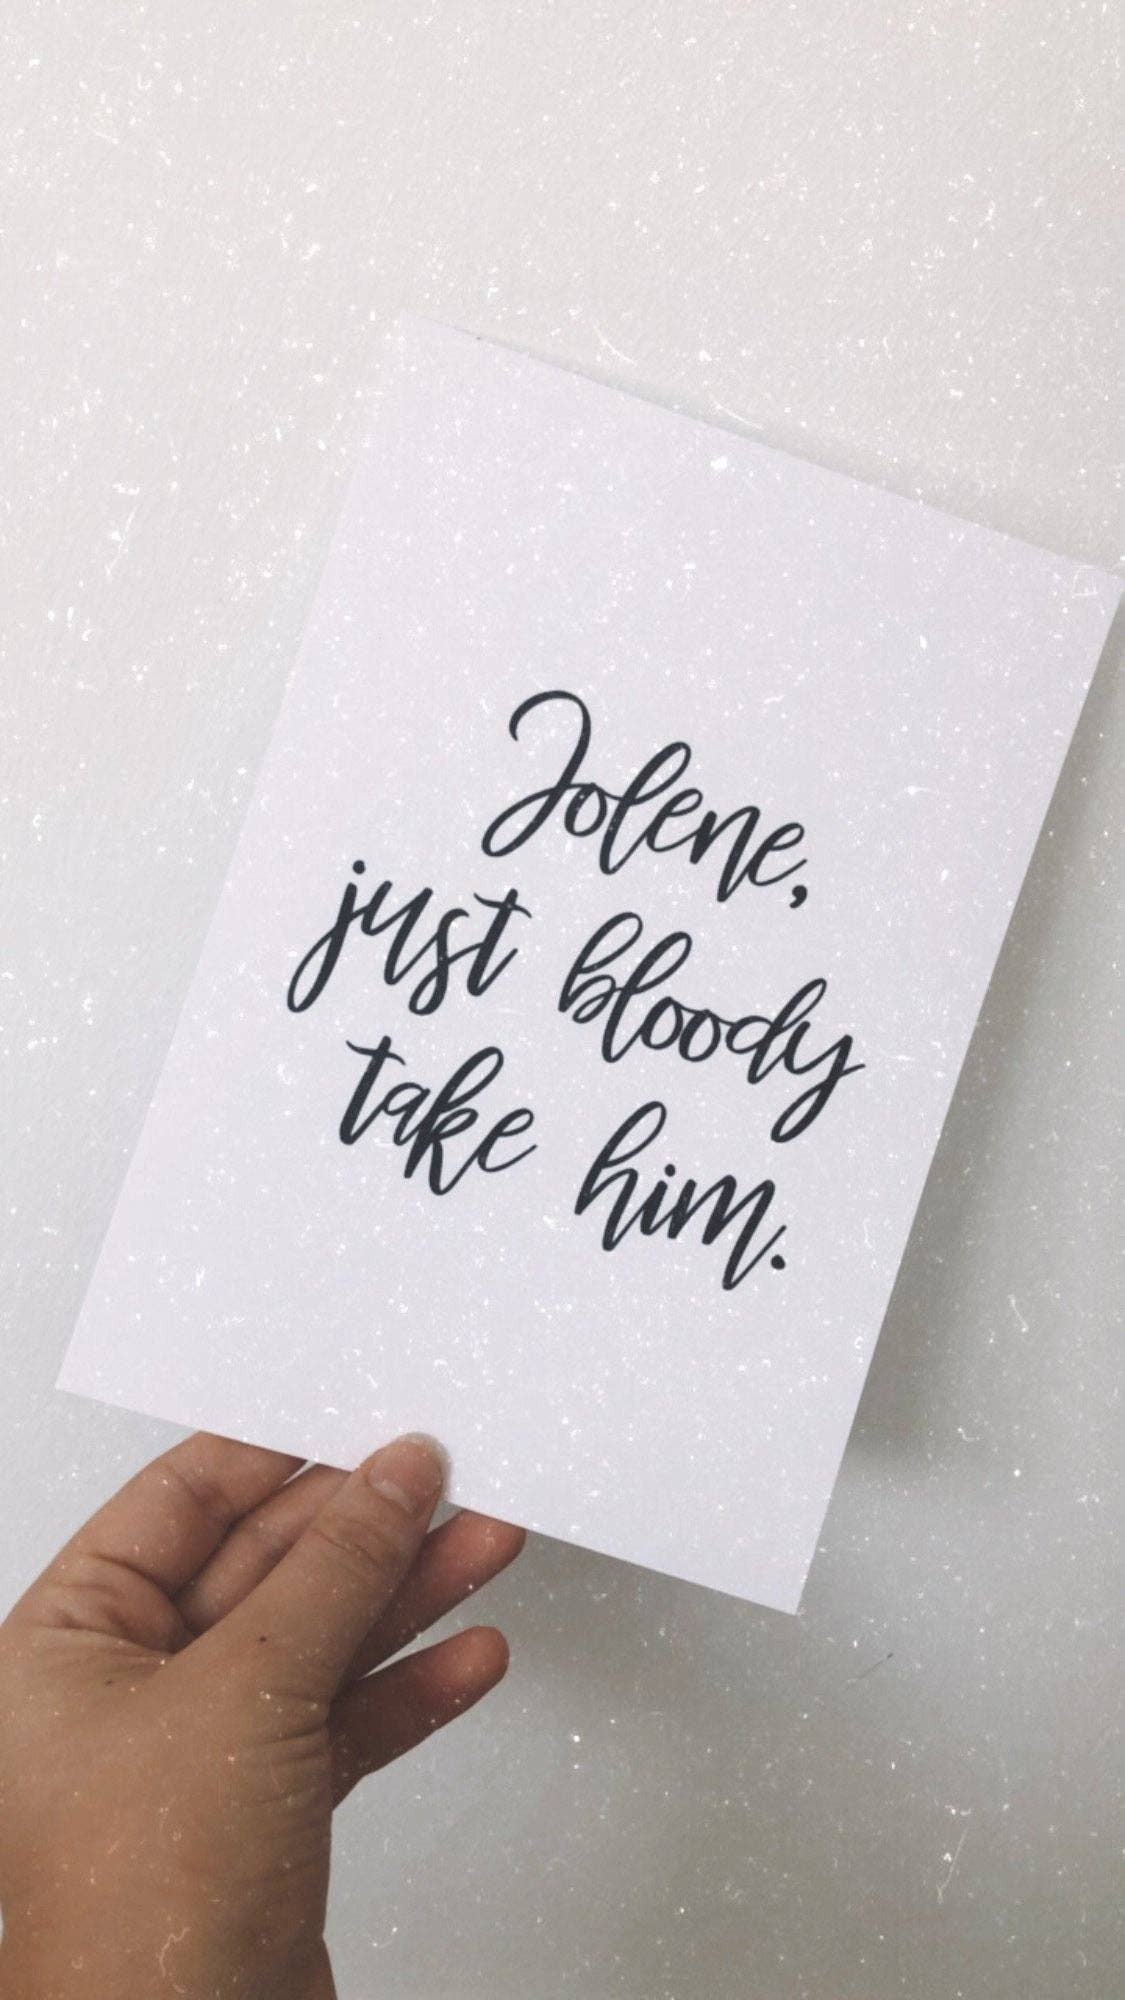 Jolene,
just bloody
take him.